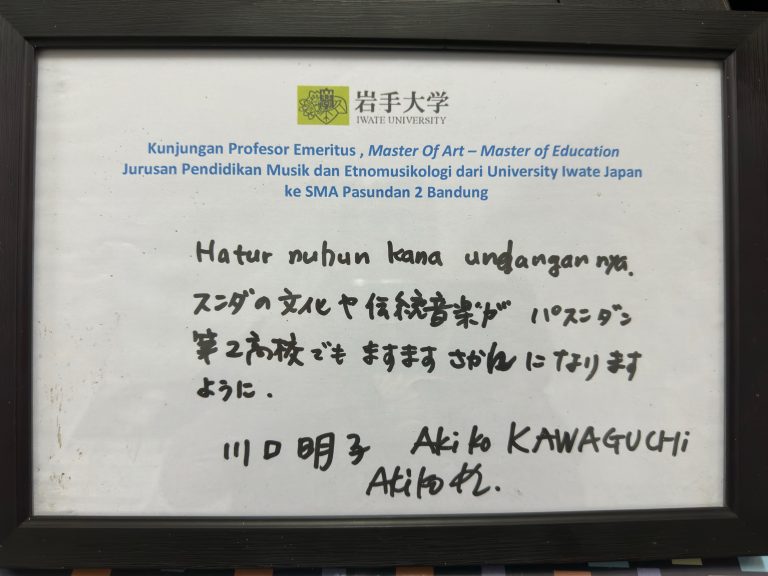 岩手大学
IWATE UNIVERSITY
Kunjungan Profesor Emeritus , Master Of Art – Master of Education
Jurusan Pendidikan Musik dan Etnomusikologi dari University Iwate Japan
ke SMA Pasundan 2 Bandung
Hatur nuhun kana undangannya.
スンダの文化や伝統音楽が パスンダン
第2高校でも ますます さかんに なります
ように.
川口明子 Akiko KAWAGUCHi
Akiko K.